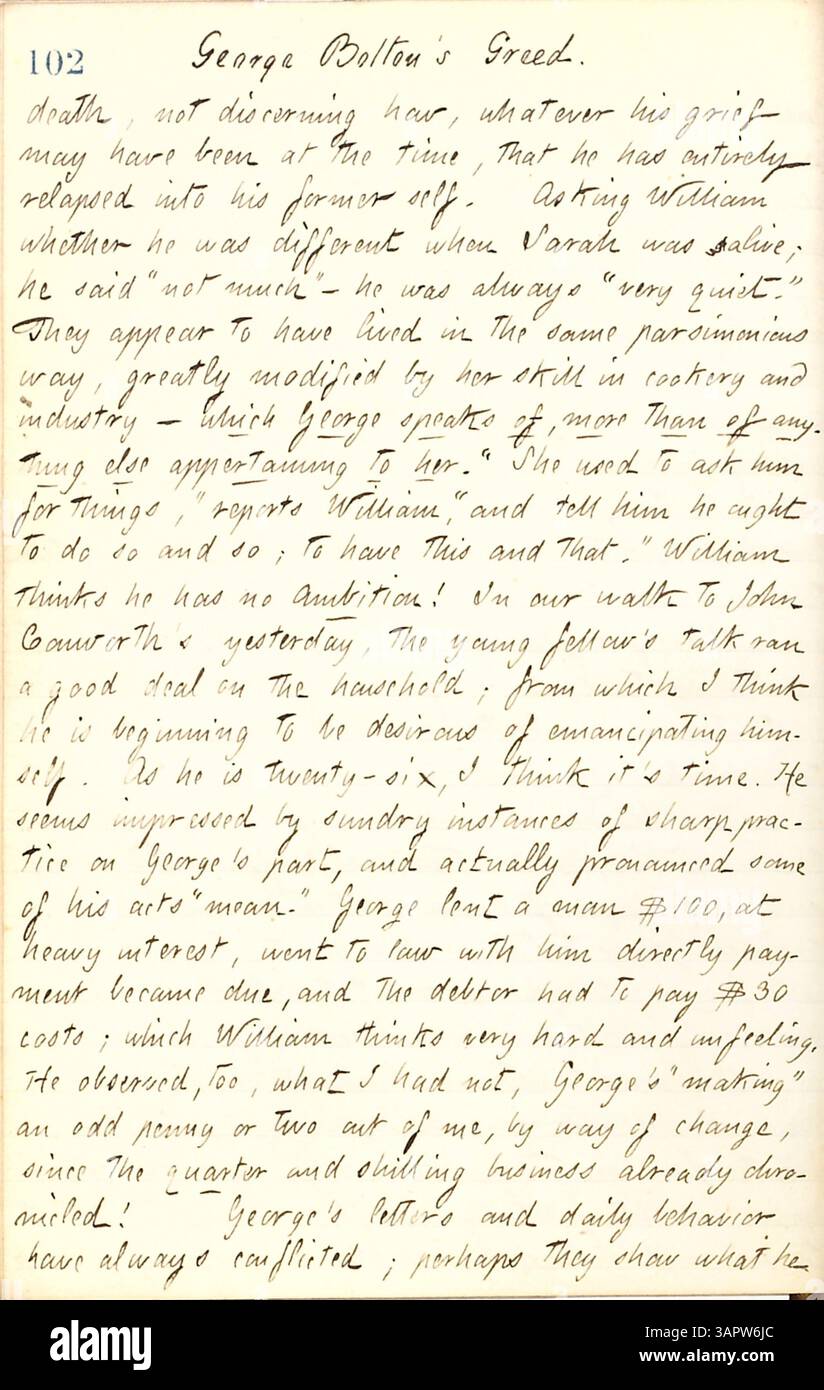 102 George Bolton's Greed.
death, not discerning how, whatever his grief
may have been at the time, that he has entirely
relapsed into his former self. Asking William
whether he was different when Sarah was alive;
he said "not much" — he was always "very quiet."
They appear to have lived in the same parsimonious
way, greatly modified by her skill in cookery and
industry — which George speaks of, more than of any-
thing else appertaining to her. "She used to ask him
for things," reports William, "and tell him he ought
to do so and so; to have this and that." William
thinks he has no ambition! In our walk to John
Conworth's yesterday, the young fellow's talk ran
a good deal on the household; from which I think
he is beginning to be desirous of emancipating him-
self. As he is twenty-six, I think it's time. He
seems impressed by sundry instances of sharp prac-
tice on George's part, and actually pronounced some
of his acts "mean." George lent a man $100, at
heavy interest, went to law with him directly pay-
ment became due, and the debtor had to pay $30
costs; which William thinks very hard and unfeeling.
He observed, too, what I had not, George's "making"
an odd penny or two out of me, by way of change,
since the quarter and shilling business already chro-
nicled! George's letters and daily behavior
have always conflicted; perhaps they show what he
alamy
Image ID: 3APW6JC
www.alamy.com